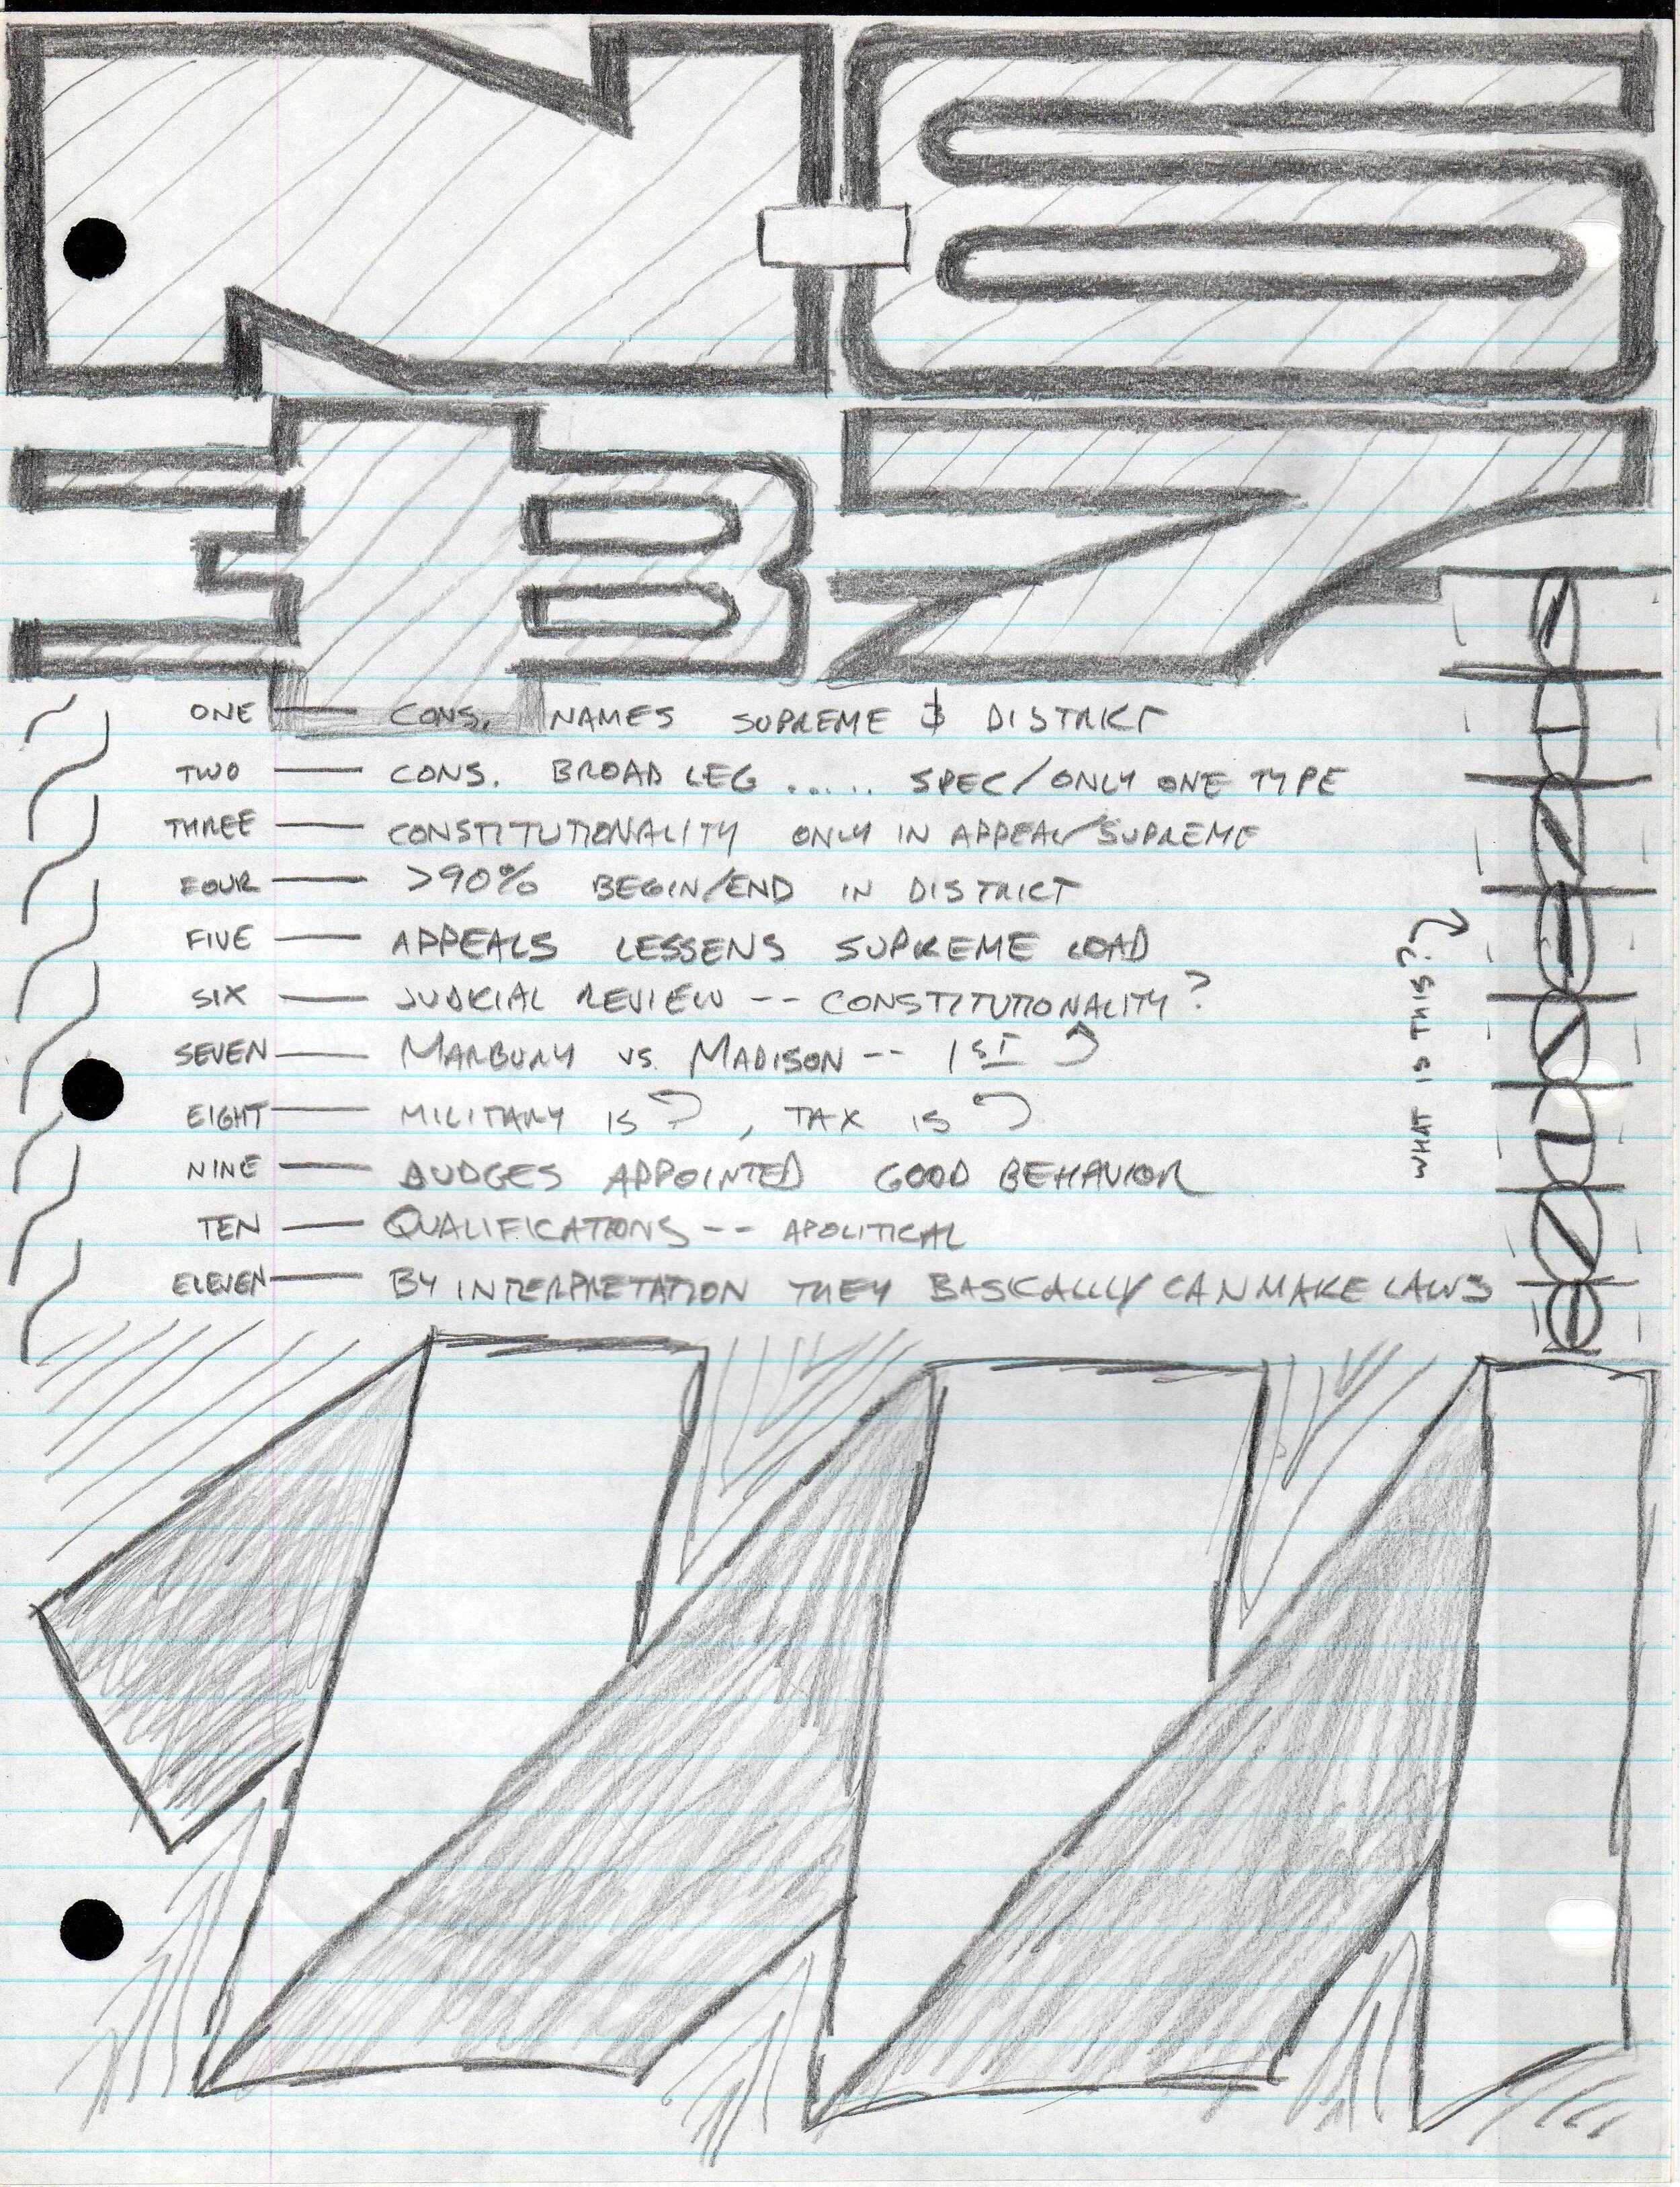 ONE — CONS. NAMES SUPREME & DISTRICT
TWO — CONS. BROAD LEG ..... SPEC/ONLY ONE TYPE
THREE — CONSTITUTIONALITY ONLY IN APPEAL/SUPREME
FOUR — >90% BEGIN/END IN DISTRICT
FIVE — APPEALS LESSENS SUPREME LOAD
SIX — JUDICIAL REVIEW -- CONSTITUTIONALITY?
SEVEN — MARBURY VS. MADISON -- 1ST
EIGHT — MILITARY IS , TAX IS
NINE — JUDGES APPOINTED GOOD BEHAVIOR
TEN — QUALIFICATIONS -- APOLITICAL
ELEVEN — BY INTERPRETATION THEY BASICALLY CAN MAKE LAWS
WHAT IS THIS?